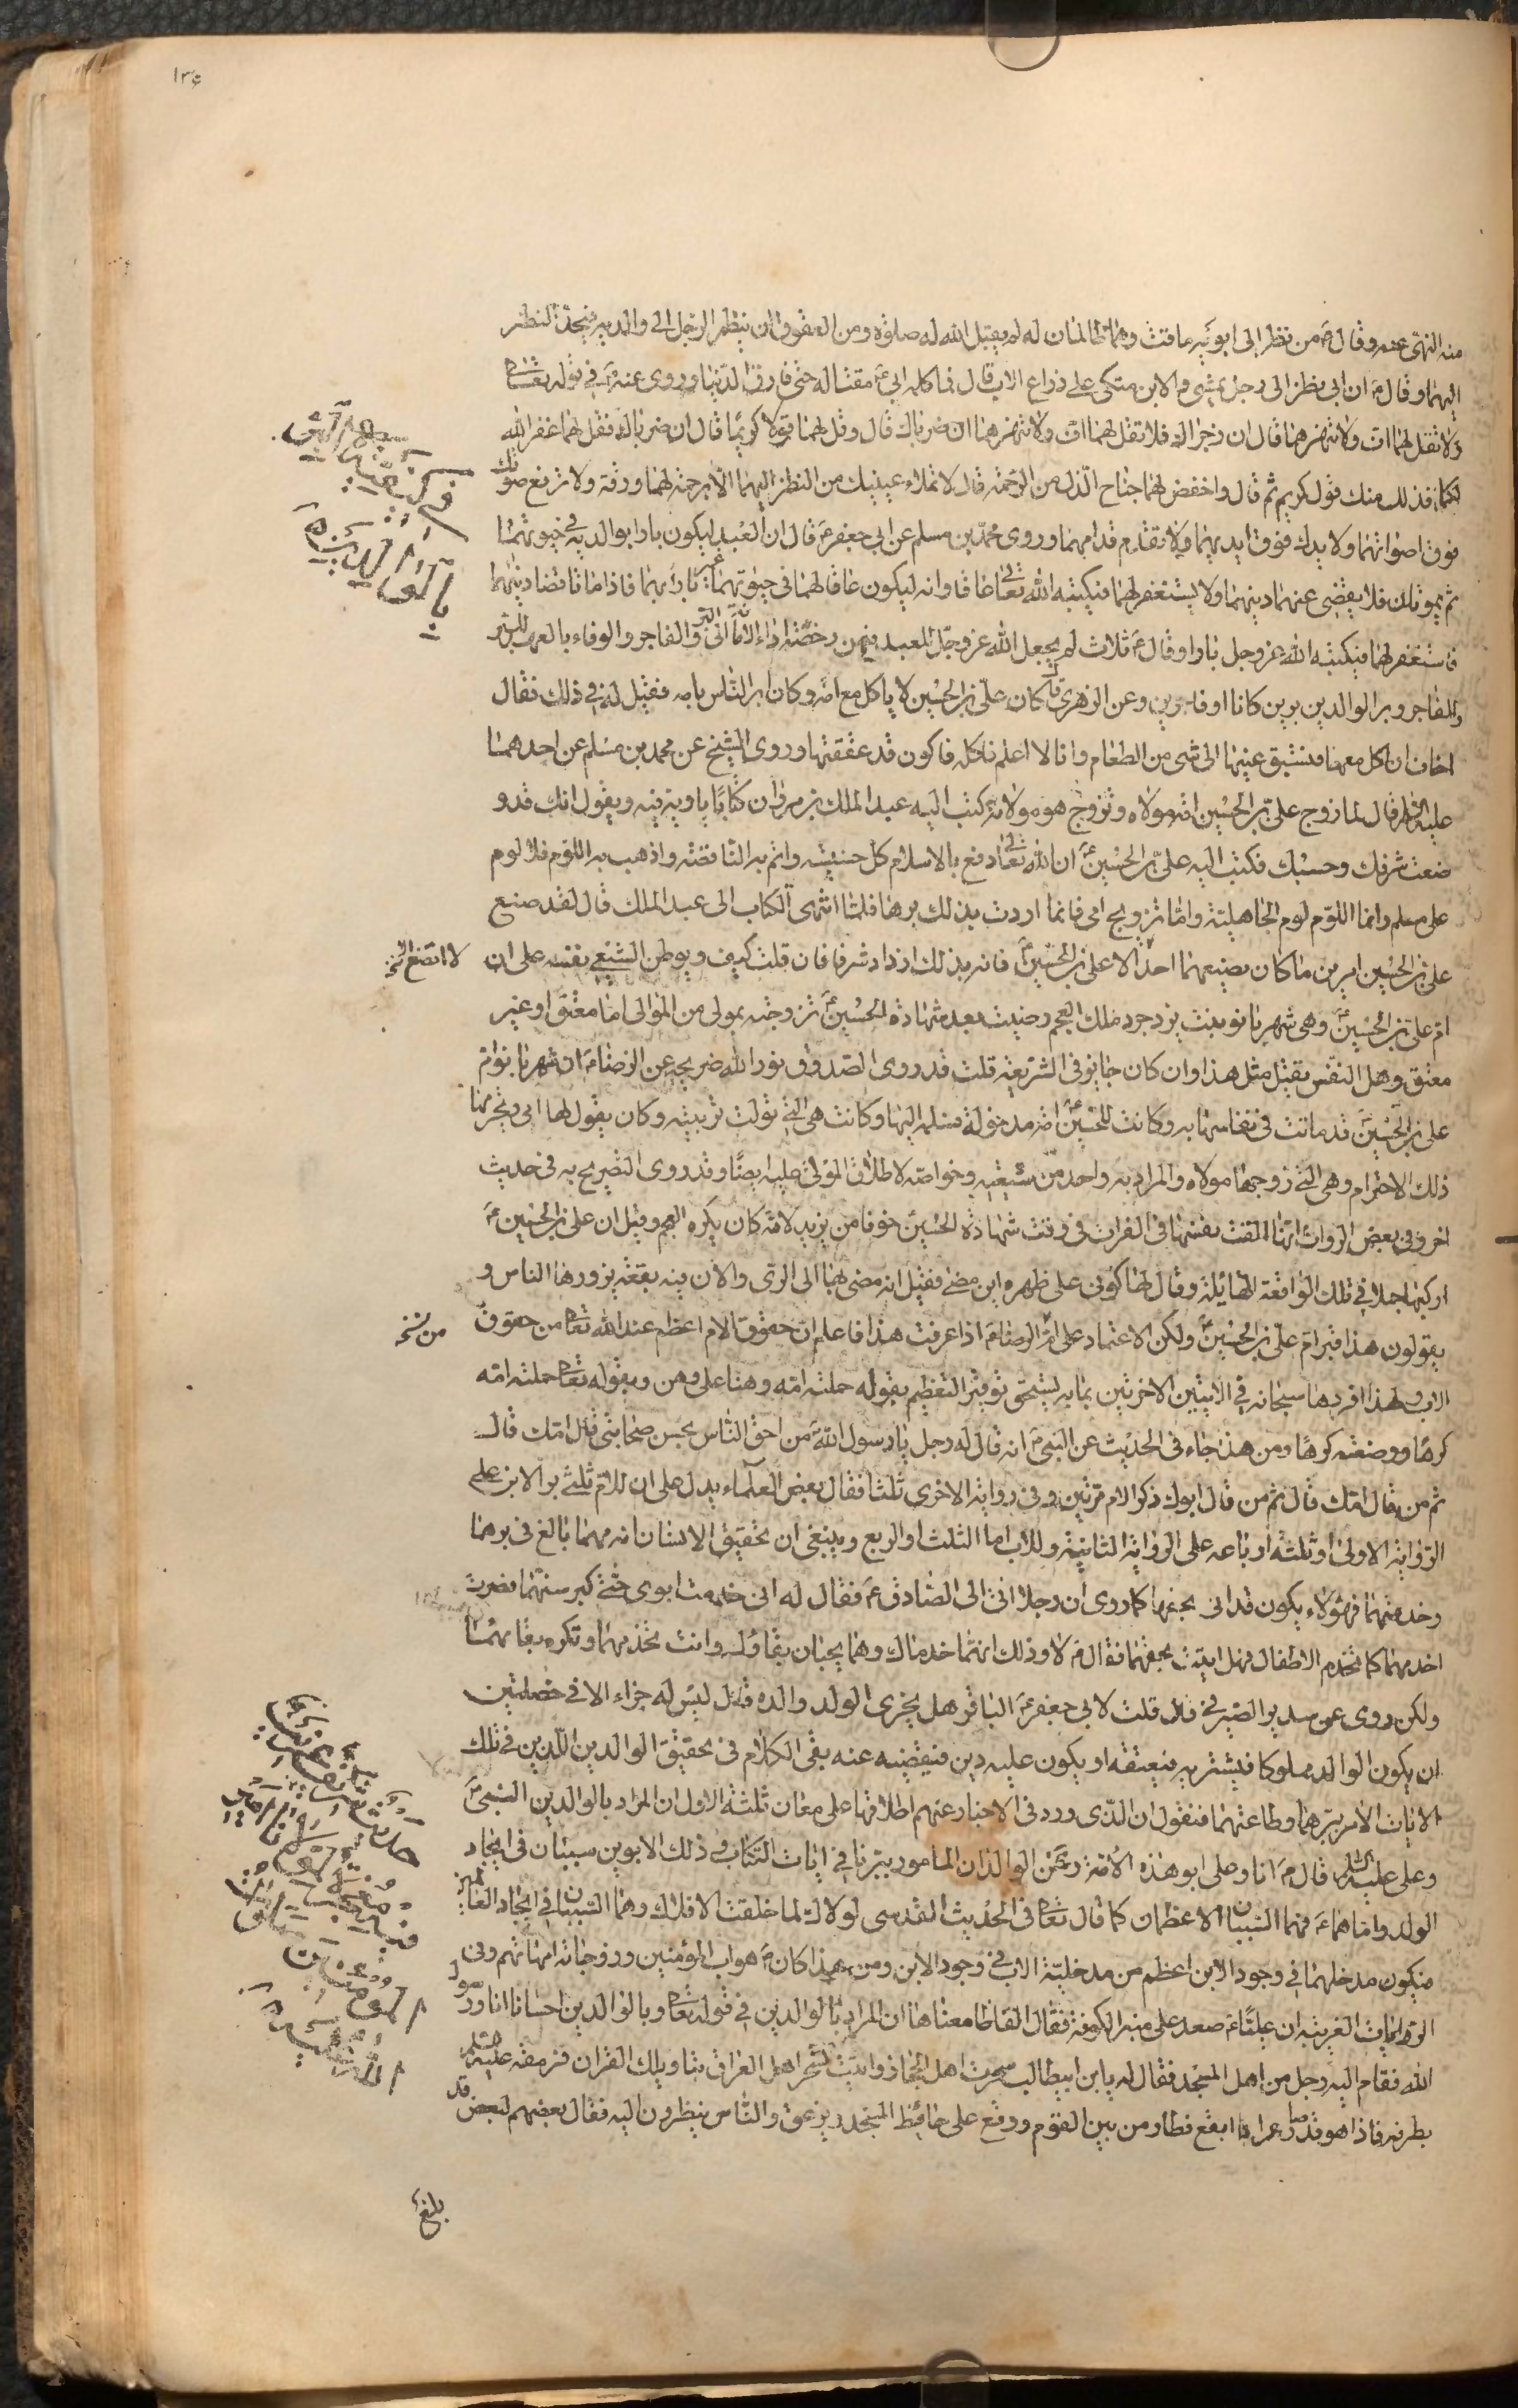 ١٣٤
منه النهى عنه وقال ع من نظر الى ابويه ماقت وهما ظالمان له لم يقبل الله له صلوة ومن العقوق ان ينظر الرجل الى والديه فيحدّ النظر
اليهما وقال ع ان ابى نظر الى رجل يمشى والابن متكى على ذراع الاب قال فما كلمه ابى ع مقتا له حتى فارق الدنيا وروى عنه ع فى قوله تعالى
ولا تقل لهما اف ولا تنهرهما قال ان ضجراك فلا تقل لهما اف ولا تنهرهما ان ضرباك قال وقل لهما قولا كريما قال ان ضرباك فقل لهما غفر الله
لكما فذلك منك قول كريم ثم قال واخفض لهما جناح الذل من الرحمة قال لا تملاء عينيك من النظر اليهما الا برحمة لهما ورقة ولا ترفع صوتك
فوق اصواتهما ولا يدك فوق ايديهما ولا تقدّم قدامهما وروى محمد بن مسلم عن ابى جعفر ع قال ان العبد ليكون بارا بوالديه فى حيوتهما
ثم يموتان فلا يقضى عنهما دينهما ولا يستغفر لهما فيكتبه الله تعالى عاقا وانه ليكون عاقا لهما فى حيوتهما غير بار بهما فاذا ماتا قضا دينهما
فاستغفر لهما فيكتبه الله عز وجل بارا وقال ع ثلاث لم يجعل الله عز وجل للعبد فيهن رخصة اداء الامانة الى البر والفاجر والوفاء بالعهد للبر
والفاجر وبر الوالدين برين كانا او فاجرين وعن الزهرى قال كان على بن الحسين لا ياكل مع امه وكان ابر الناس بامه فقيل له فى ذلك فقال
اخاف ان اكل معها فتسبق عينها الى شى من الطعام وانا لا اعلم فاكله فاكون قد عققتها وروى الشيخ عن محمد بن مسلم عن احدهما
عليه السلم قال لما زوج على بن الحسين امه مولاه وتزوج هو مولاته كتب اليه عبد الملك بن مروان كتابا يلومه فيه ويقول انك قد و
ضعت شرفك وحسبك فكتب اليه على بن الحسين ع ان الله تعالى رفع بالاسلام كل خسيسة واتم به الناقصة واذهب به اللوم فلا لوم
على مسلم وانما اللوم لوم الجاهلية واما تزويج امى فانما اردت بذلك برها فلما انتهى الكتاب الى عبد الملك قال لقد صنع
على بن الحسين امرين ما كان يصنعهما احد الا على بن الحسين ع فانه بذلك ازداد شرفا فان قلت كيف يوطن الشيعى نفسه على ان
ام على بن الحسين ع وهى شهربانو بنت يزدجرد ملك العجم رضيت بعد شهادة الحسين ع تزوجه بمولى من الموالى اما معتق او غير
معتق وهل النفس تقبل مثل هذا وان كان جايزا فى الشريعة قلت قد روى الصدوق نور الله ضريحه عن الرضا ع ان شهربانو ام
على بن الحسين ع قد ماتت فى نفاسها به وكانت للحسين ع امة مدخولة فسلمه اليها وكانت هى التى تولت تربيته وكان يقول لها امى ويحترمها
ذلك الاحترام وهى التى زوجها مولاه والمراد به واحد من شيعته وخواصه لاطلاق المولى عليه ايضا وقد روى التصريح به فى حديث
اخر وفى بعض الروايات انها القت نفسها فى الفرات فى وقت شهادة الحسين ع خوفا من يزيد لانه كان يكره العجم وقيل ان على بن الحسين ع
اركبها جملا فى تلك الواقعة الهائلة وقال لها كونى على ظهره اين مضى فقيل انه مضى بها الى الرى والان فيه بقعة يزورها الناس و
يقولون هذا قبر ام على بن الحسين ع ولكن الاعتماد على اثر الرضا ع اذا عرفت هذا فاعلم ان حقوق الام اعظم عند الله تعالى من حقوق
الاب ولهذا افردها سبحانه فى الايتين الاخرتين بما به يستحق توفير التعظيم بقوله حملته امه وهنا على وهن وبقوله تعالى حملته امه
كرها ووضعته كرها ومن هذا جاء فى الحديث عن النبى ص انه قال له رجل يا رسول الله من احق الناس بحسن صحابتى قال امك قال
ثم من قال امك قال ثم من قال ابوك ذكر الام مرتين وفى رواية الاخرى ثلثا فقال بعض العلماء يدل على ان للام ثلثى بر الابن على
الرواية الاولى او ثلثة ارباعه على الرواية الثانية وللاب اما الثلث او الربع وينبغى ان تحقيق الانسان انه مهما بالغ فى برهما
وخدمتهما فهؤلاء يكون قد اتى بحقهما كما روى ان رجلا اتى الى الصادق ع فقال له انى خدمت ابوى حتى كبر سنهما فصرت
اخدمهما كما تخدم الاطفال فهل اديت حقهما فقال ع لا وذلك انهما خدماك وهما يحبان بقاؤك وانت تخدمهما وتكره بقائهما
ولكن روى عن سدير الصيرفى قال قلت لابى جعفر ع الباقر هل يجزى الولد والده قال ليس له جزاء الا فى خصلتين
ان يكون الوالد مملوكا فيشتريه فيعتقه او يكون عليه دين فيقضيه عنه بقى الكلام فى تحقيق الوالدين اللذين فى تلك
الايات الامر ببرهما وطاعتهما فنقول ان الذى ورد فى الاخبار عنهم اطلاقها على معان ثلثة الاول ان المراد بالوالدين النبى ص
وعلى عليه السلم قال ص انا وعلى ابو هذه الامة ونحن الوالدان المامور ببرنا فى ايات الكتاب وذلك الابوين سببان فى ايجاد
الولد واما هما ع فهما السببان الاعظمان كما قال تعالى فى الحديث القدسى لولاك لما خلقت الافلاك وهما السببان فى ايجاد العالم
فيكون مدخلهما فى وجود الابن اعظم من مدخلية الاب فى وجود الابن ومن هذا كان ص هو اب المؤمنين وزوجاته امهاتهم وفى
الروايات الغريبة ان عليا ع صعد على منبر الكوفة فقال الفاظا معناها ان المراد بالوالدين فى قوله تعالى وبالوالدين احسانا انا ورسول
الله فقام اليه رجل من اهل المسجد فقال له يا بن ابيطالب سحرت اهل الحجاز واتيت تسحر اهل العراق بتاويلك القران فرمقه عليه السلم
بطرفه فاذا هو قد صار غرابا ابقع فطار من بين القوم ووقع على حائط المسجد يزعق والناس ينظرون اليه فقال بعضهم لبعض قد
بالوالدين
لا اتضع نخ
من نسخه
بلغ